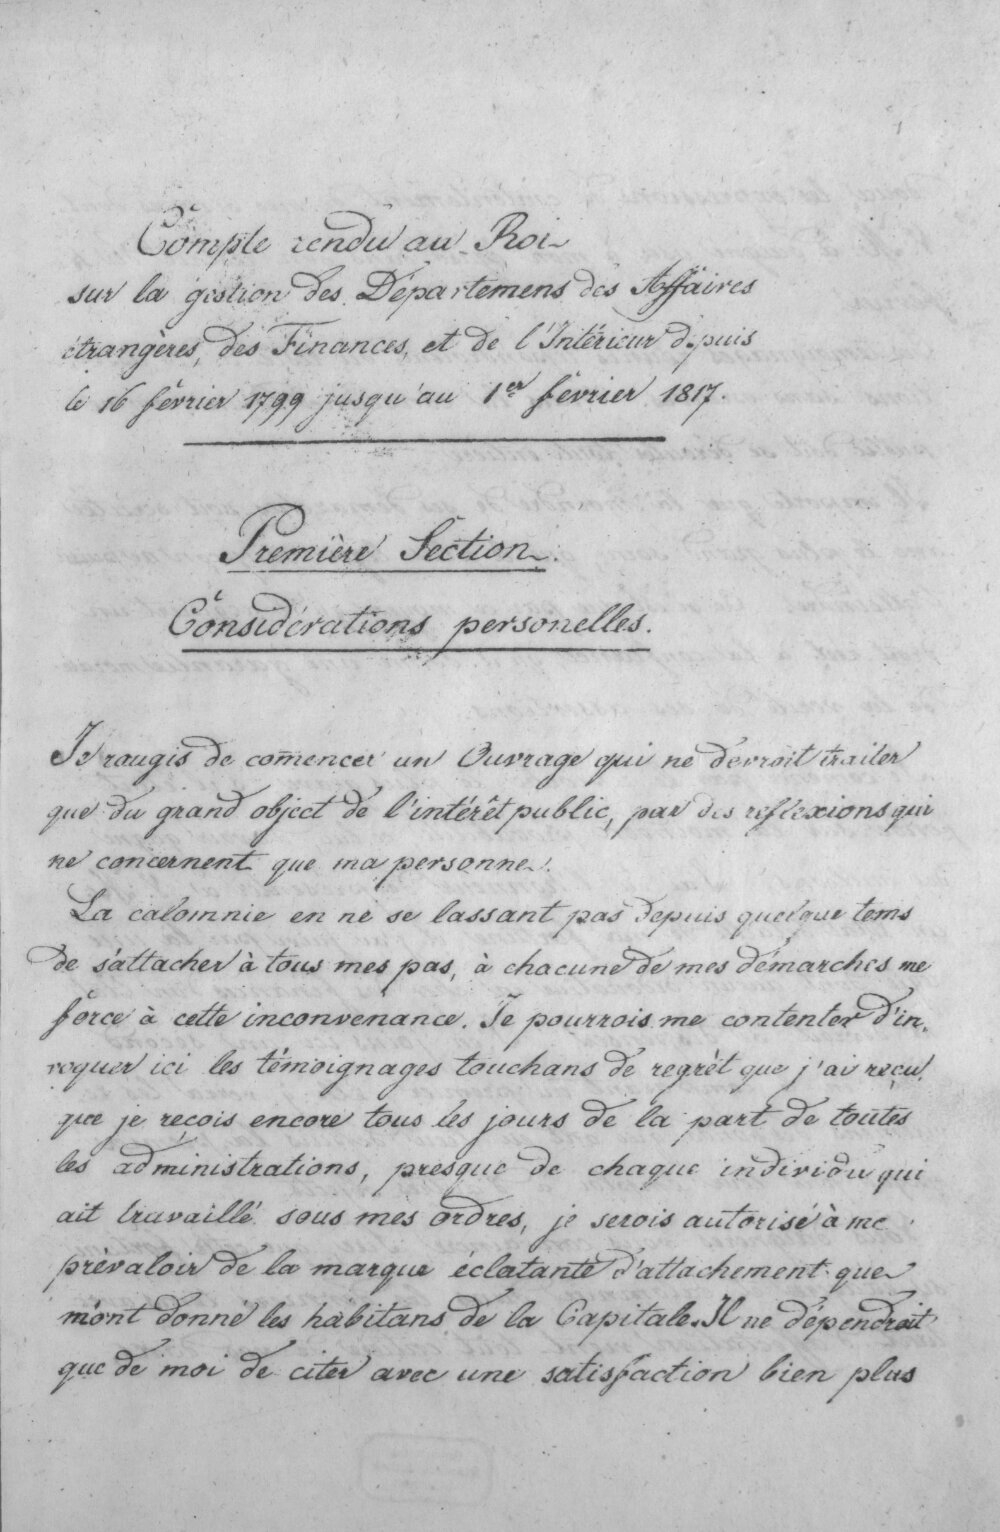 Compte rendu au Roi
sur la gestion des Départemens des Affaires
étrangères, des Finances, et de l'Intérieur depuis
le 16 février 1799 jusqu'au 1er février 1817.
Première Section.
Considérations personelles.
Je rougis de com̄encer un Ouvrage qui ne devroit traiter
que du grand object de l'intérêt public, par des reflexions qui
ne concernent que ma personne.
La calomnie en ne se lassant pas depuis quelque tems
de s'attacher à tous mes pas, à chacune de mes démarches me
force à cette inconvenance. Je pourrois me contenter d'in„
voquer ici les témoignages touchans de regrèt que j'ai reçu,
que je reçois encore tous les jours de la part de toutes
les administrations, presque de chaque individu qui
ait travaillé sous mes ordres, je serois autorisé à me
prévaloir de la marque éclatante d'attachement que
m'ont donné les habitans de la Capitale. Il ne dépendroit
que de moi de citer avec une satisfaction bien plus